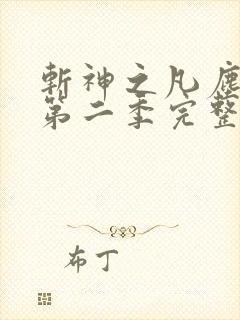 斬神之凡塵
第二季完整
布丁